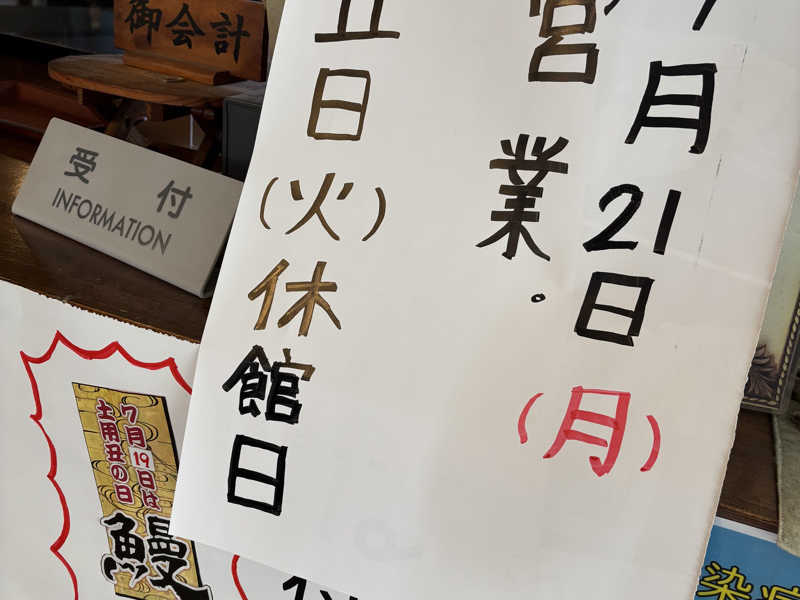 御会計
受付
INFORMATION
7月21日(月)
営業.
日(火)休館日
7月19日は
土用丑の日
鰻
染